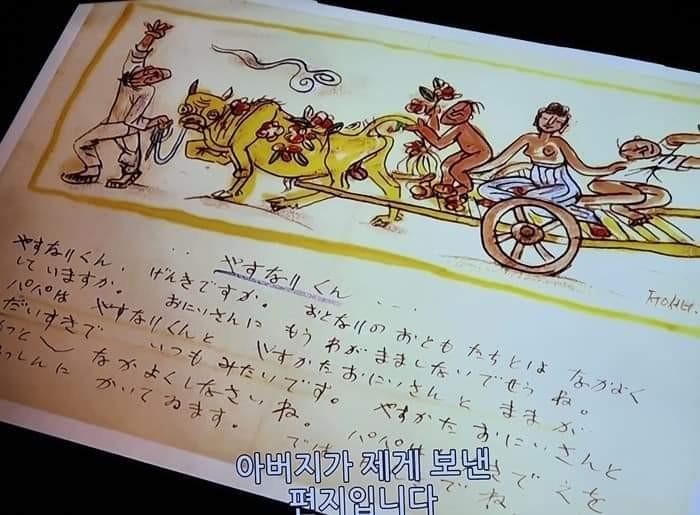 ㅈㅜㅇㅅㅓㅂ
やすなりくん
やすなりくん、げんきですか。おとなりのおともだちとは なかよく
していますか。おにいさんに もう わがまましないでせうね。
パパは やすなりくんと やすかたおにいさんと ままが
だいすきで いつもみたいです。やすかたおにいさんと
もっと〱 なかよくしなさいね。では パパは きで えを
っしんに かいてゐます。 でね
아버지가 제게 보낸
편지입니다